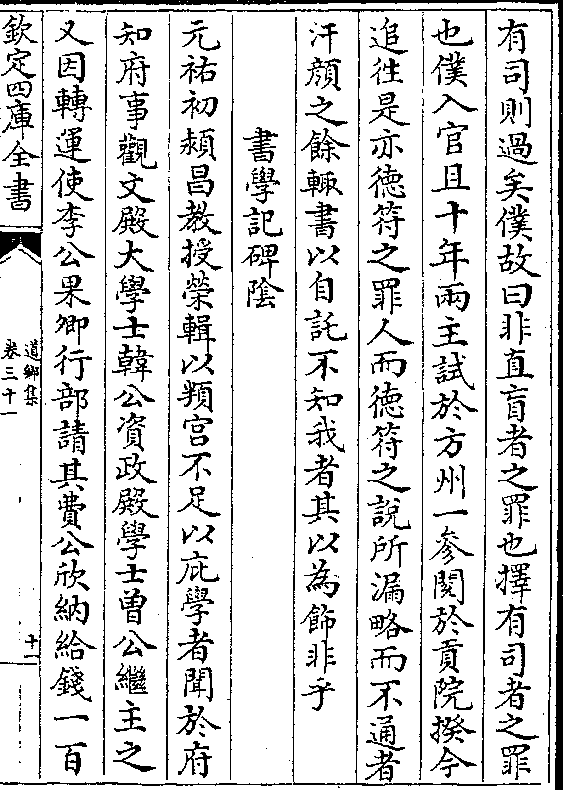 有司則過矣僕故曰非直盲者之罪也擇有司者之罪
也僕入官且十年兩主試於方州一參閱於貢院揆今
追徃是亦德符之罪人而德符之說所漏略而不通者
汗顔之餘輒書以自託不知我者其以為飾非乎
書學記碑隂
元祐初潁昌教授榮輯以頖宫不足以庇學者聞於府
知府事觀文殿大學士韓公資政殿學士曾公繼主之
又因轉運使李公果卿行部請其費公欣納給錢一百
欽定四庫全書
道鄉集
卷三十一
十一